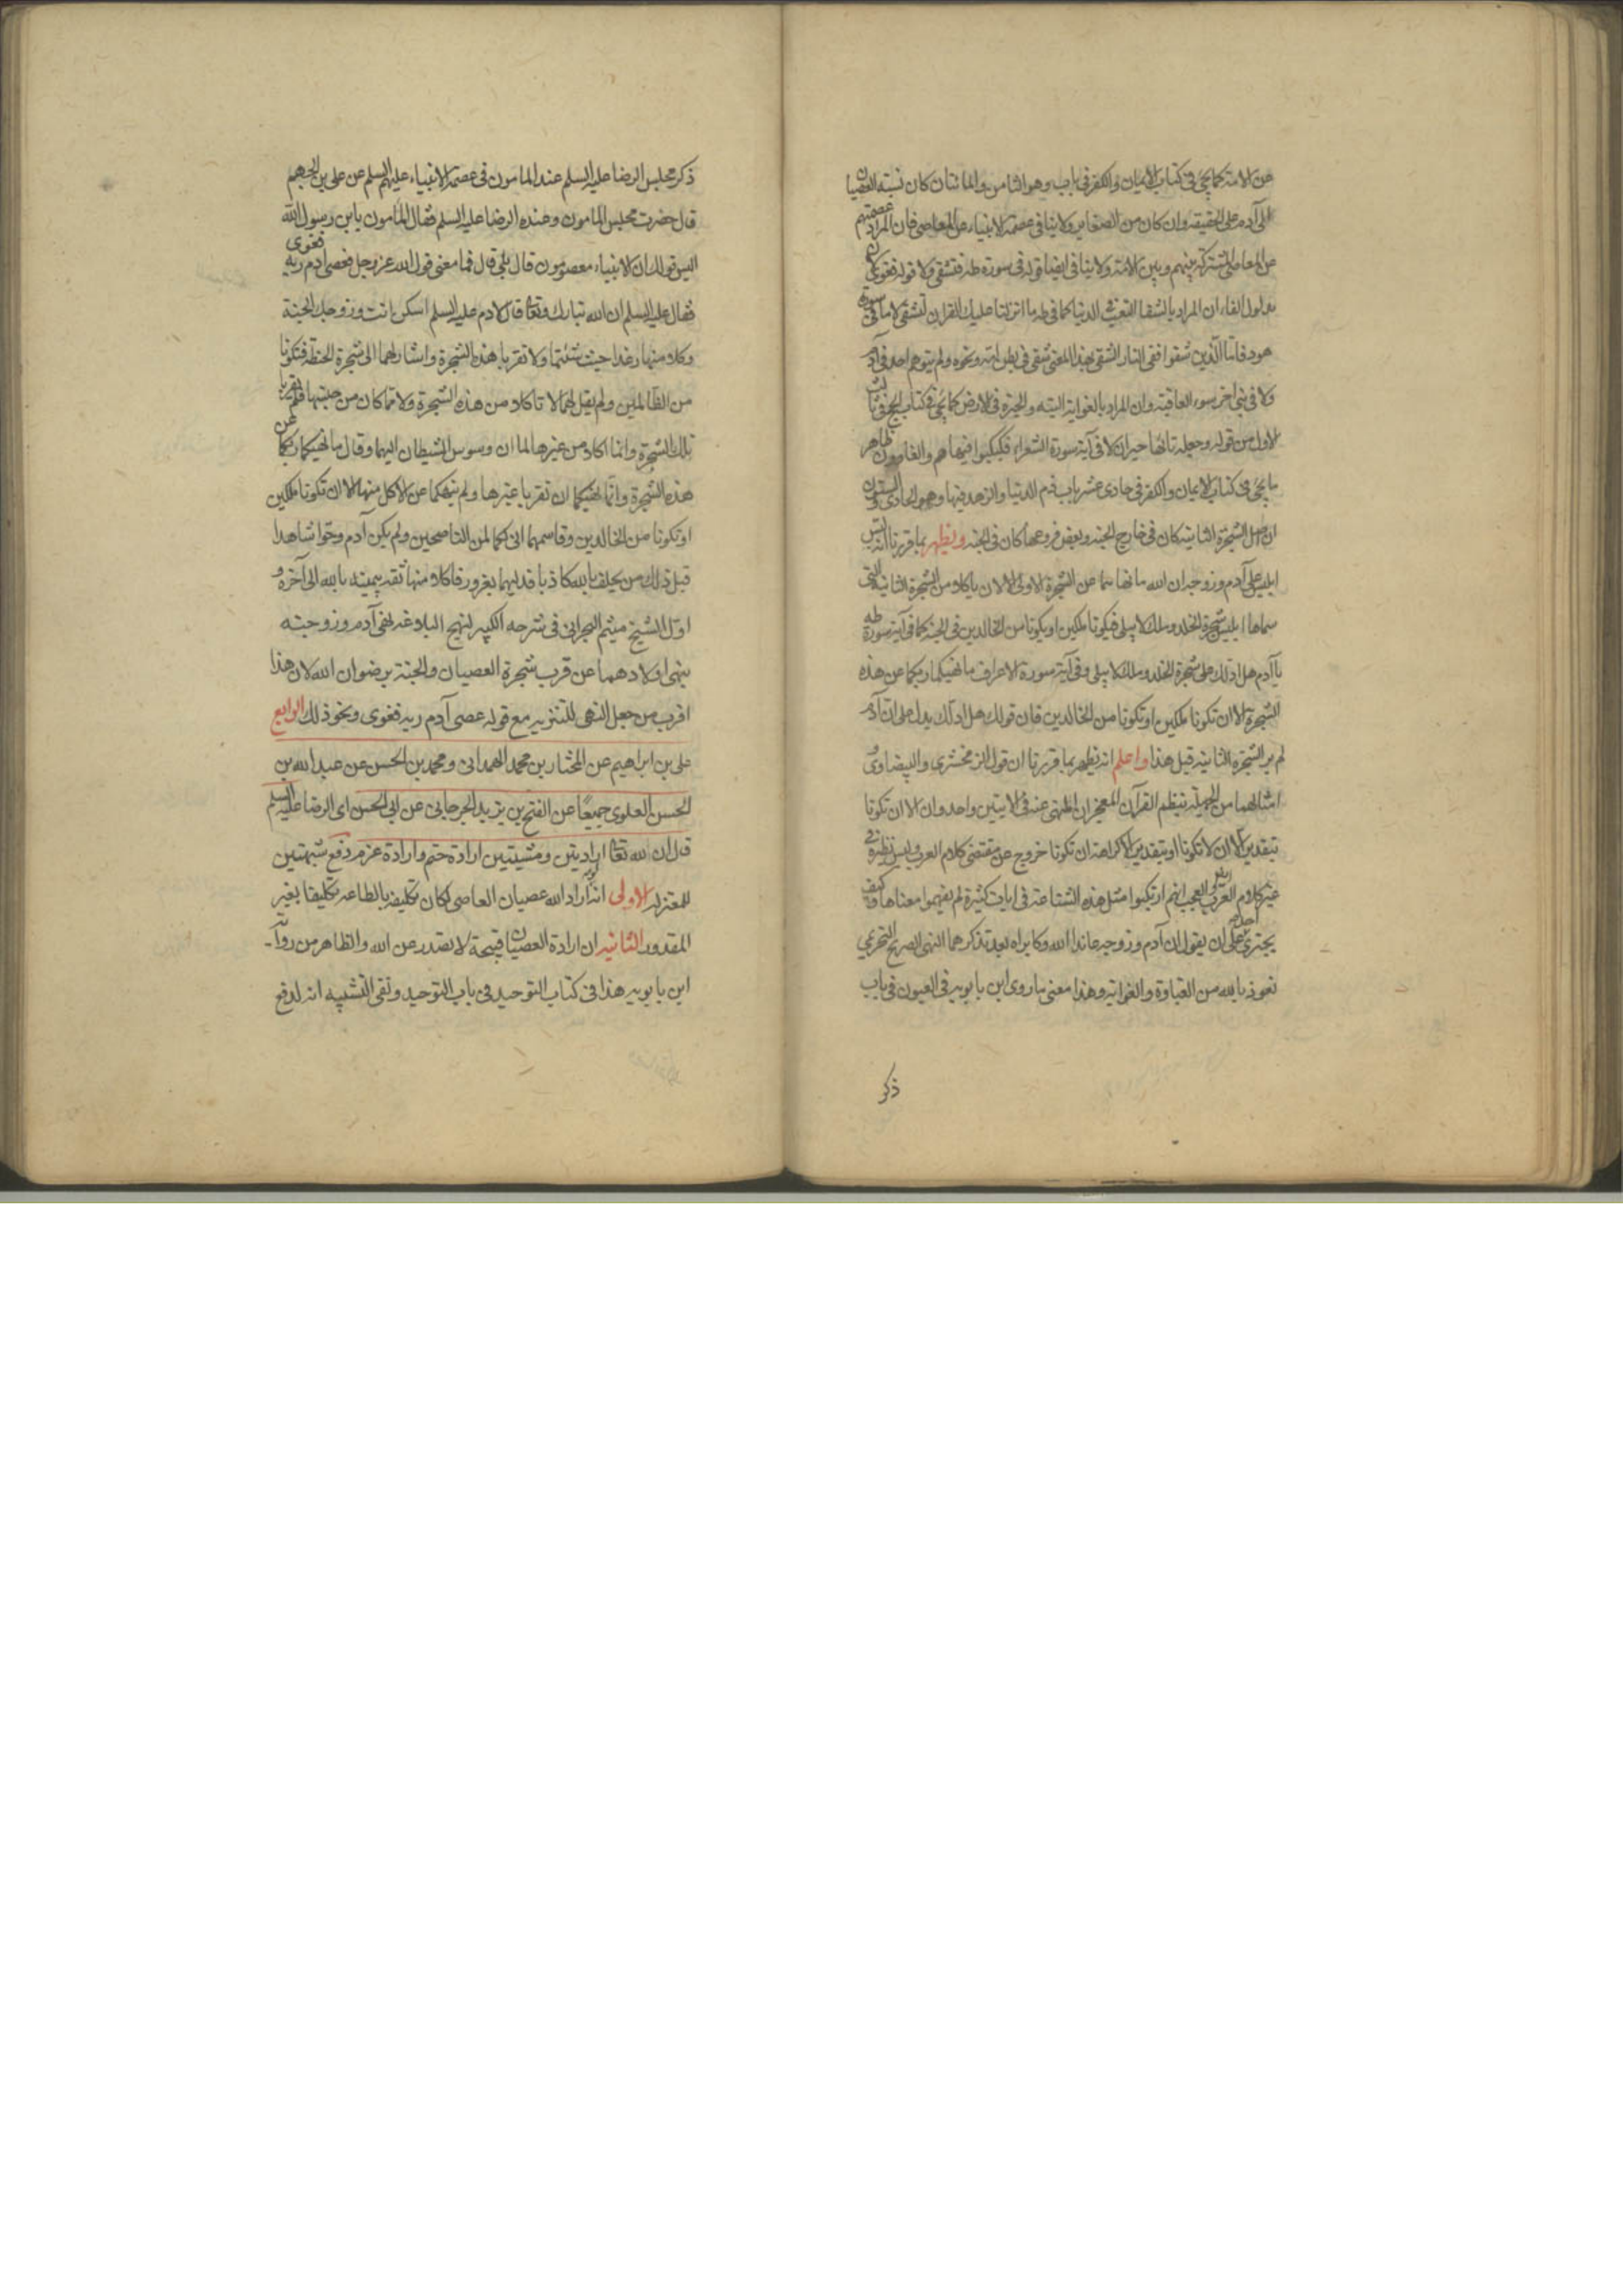 عن الامة كما يجئ فى كتاب الايمان والكفر فى باب وهو الثامن والمائتان كان نسبة العصيان
الى آدم على الحقيقة وان كان من الصغاير ولا ينافى عصمة الانبياء عن المعاصى فان المراد عصمتهم
عن المعاصى المشتركة بينهم وبين الامة ولا ينافى ايضا قوله فى سورة طه فتشقى ولا قوله فغوى لان
مدلول الفاء ان المراد بالشقا التعب فى الدنيا كما فى طه ما انزلنا عليك القرآن لتشقى لا ما فى سورة
هود فاما الذين شقوا ففى النار الشقى بهذا المعنى شقى فى بطن امه ونحوه ولم يتوهم احد فى آدم
ولا فى نبى اخر سوء العاقبة وان المراد بالغواية التيه والحيرة فى الارض كما يجئ فى كتاب الحج فى ثالث
الاول من قوله وجعله تائها حيران لا فى آية سورة الشعراء فكبكبوا فيها هم والغاوون ظاهر
ما يجئ فى كتاب الايمان والكفر فى حادى عشر باب ذم الدنيا والزهد فيها وهو الحادى والستون
ان اصل الشجرة الثانية كان فى خارج الجنة وبعض فروعها كان فى الجنة ويظهر بما قررنا انه لبّس
ابليس على آدم وزوجه ان الله ما نهاهما عن الشجرة الاولى الا لان ياكلا من الشجرة الثانية التى
سماها ابليس شجرة الخلد وملك لا يبلى فيكونا ملكين او يكونا من الخالدين فى الجنة كما فى آية سورة طه
يا آدم هل ادلك على شجرة الخلد وملك لا يبلى وفى آية سورة الاعراف ما نهيكما ربكما عن هذه
الشجرة الا ان تكونا ملكين او تكونا من الخالدين فان قوله هل ادلك يدل على ان آدم
لم ير الشجرة الثانية قبل هذا واعلم انه يظهر بما قررنا ان قول الزمخشرى والبيضاوى و
امثالهما من الجهلة بنظم القرآن المعجز ان المنهى عنه فى الآيتين واحد وان الا ان تكونا
بتقدير الا ان لا تكونا او بتقدير الا كراهة ان تكونا خروج عن مقتضى كلام العرب وليس نظيره فى
غير كلام العرب والعجب انهم ارتكبوا مثل هذه الشناعة فى ايات كثيرة لم يفهموا معناها وكيف
يجترئ احد على ان يقول ان آدم وزوجه عاندا الله وكابراه بعد تذكرهما النهى الصريح التحريمى
نعوذ بالله من الغباوة والغواية وهذا معنى ما روى ابن بابويه فى العيون فى باب
ذكر
ذكر مجلس الرضا عليه السلم عند المامون فى عصمة الانبياء عليهم السلم عن على بن الجهم
قال حضرت مجلس المامون وعنده الرضا عليه السلم فقال له المامون يابن رسول الله
اليس قولك ان الانبياء معصومون قال بلى قال فما معنى قول الله عز وجل فعصى ادم ربه فغوى
فقال عليه السلم ان الله تبارك وتعالى قال لادم عليه السلم اسكن انت وزوجك الجنة
وكلا منها رغدا حيث شئتما ولا تقربا هذه الشجرة واشار لهما الى شجرة الحنطة فتكونا
من الظالمين ولم يقل لهما لا تاكلا من هذه الشجرة ولا مما كان من جنسها فلم يقربا
تلك الشجرة وانما اكلا من غيرها لما ان وسوس الشيطان اليهما وقال ما نهيكما ربكما عن
هذه الشجرة وانما نهيكما ان تقربا غيرها ولم ينهكما عن الاكل منها الا ان تكونا ملكين
او تكونا من الخالدين وقاسمهما انى لكما لمن الناصحين ولم يكن آدم وحوا شاهدا
قبل ذلك من يحلف بالله كاذبا فدليهما بغرور فاكلا منها ثقة بيمينه بالله الى آخره و
اوّل الشيخ ميثم البحرانى فى شرحه الكبير لنهج البلاغه نهى آدم وزوجته
بنهى اولادهما عن قرب شجرة العصيان والجنة برضوان الله لان هذا
اقرب من جعل النهى للتنزيه مع قوله عصى آدم ربه فغوى ونحو ذلك الرابع
على بن ابراهيم عن المختار بن محمد الهمدانى ومحمد بن الحسن عن عبد الله بن
الحسن العلوى جميعًا عن الفتح بن يزيد الجرجانى عن ابى الحسن اى الرضا عليه السلم
قال ان لله تعالى ارادتين ومشيتين ارادة حتم وارادة عزم دفع شبهتين
للمعتزلة الاولى انه لو اراد الله عصيان العاصى لكان تكليفه بالطاعة تكليفا بغير
المقدور الثانية ان ارادة العصيان قبيحة لا تصدر عن الله والظاهر من رواية
ابن بابويه هذا فى كتاب التوحيد فى باب التوحيد ونفى التشبيه انه لدفع